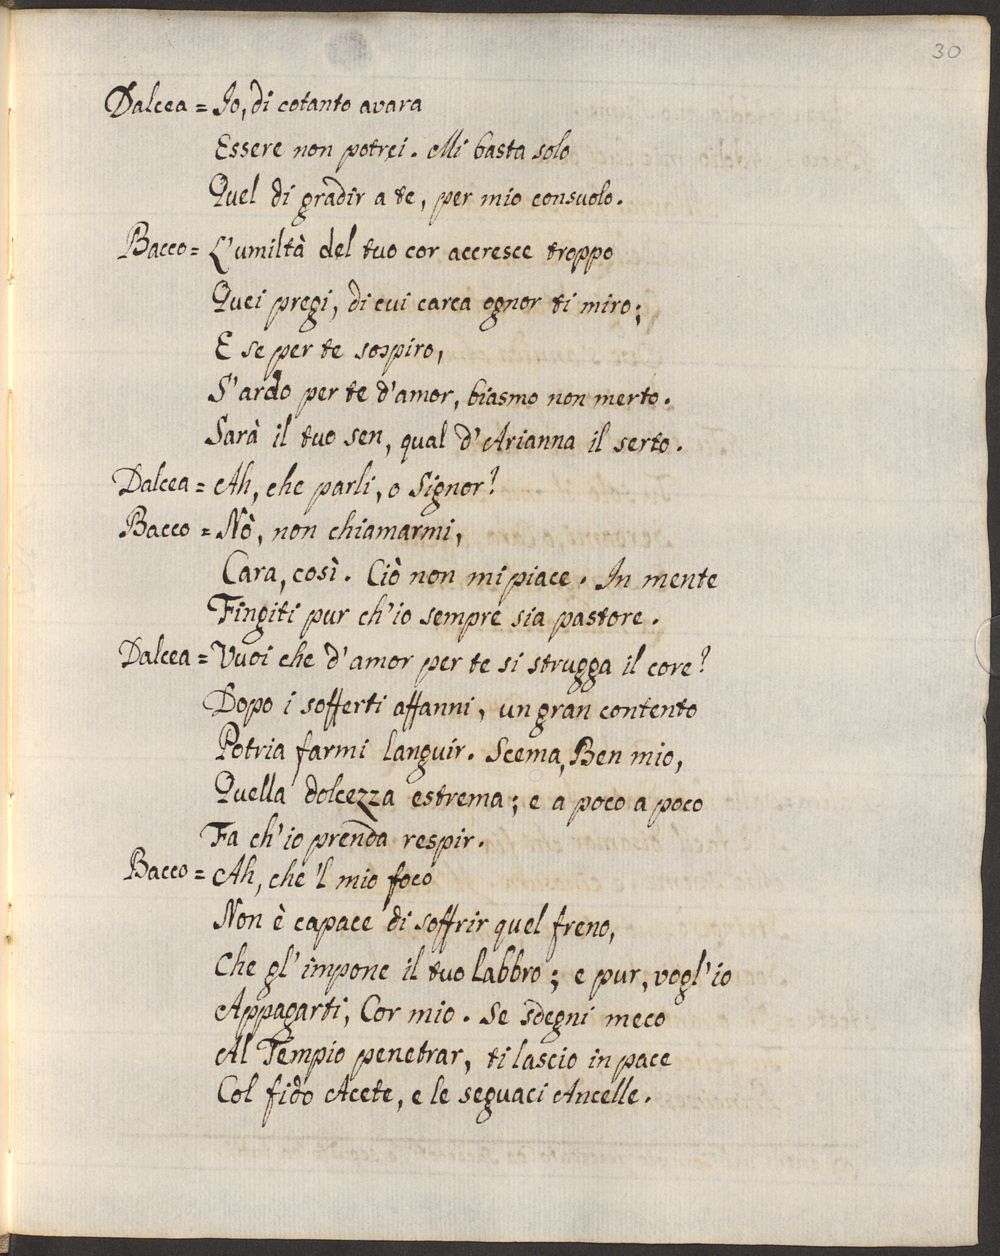 30
Dalcea = Io, di cotanto avara
Essere non potrei. Mi basta solo
Quel di gradir a te, per mio consuolo.
Bacco = L'umiltà del tuo cor accresce troppo
Quei pregi, di cui carca ognor ti miro;
E se per te sospiro,
S'ardo per te d'amor, biasmo non merto.
Sarà il tuo sen, qual d'Arianna il serto.
Dalcea = Ah, che parli, o Signor?
Bacco = Nò, non chiamarmi,
Cara, così. Ciò non mi piace. In mente
Fingiti pur ch'io sempre sia pastore.
Dalcea = Vuoi che d'amor per te si strugga il core?
Dopo i sofferti affanni, un gran contento
Potria farmi languir. Scema, Ben mio,
Quella dolcezza estrema; e a poco a poco
Fa ch'io prenda respir.
Bacco = Ah, che 'l mio foco
Non è capace di soffrir quel freno,
Che gl'impone il tuo labbro; e pur, vogl'io
Appagarti, Cor mio. Se sdegni meco
Al Tempio penetrar, ti lascio in pace
Col fido Acete, e le seguaci Ancelle.